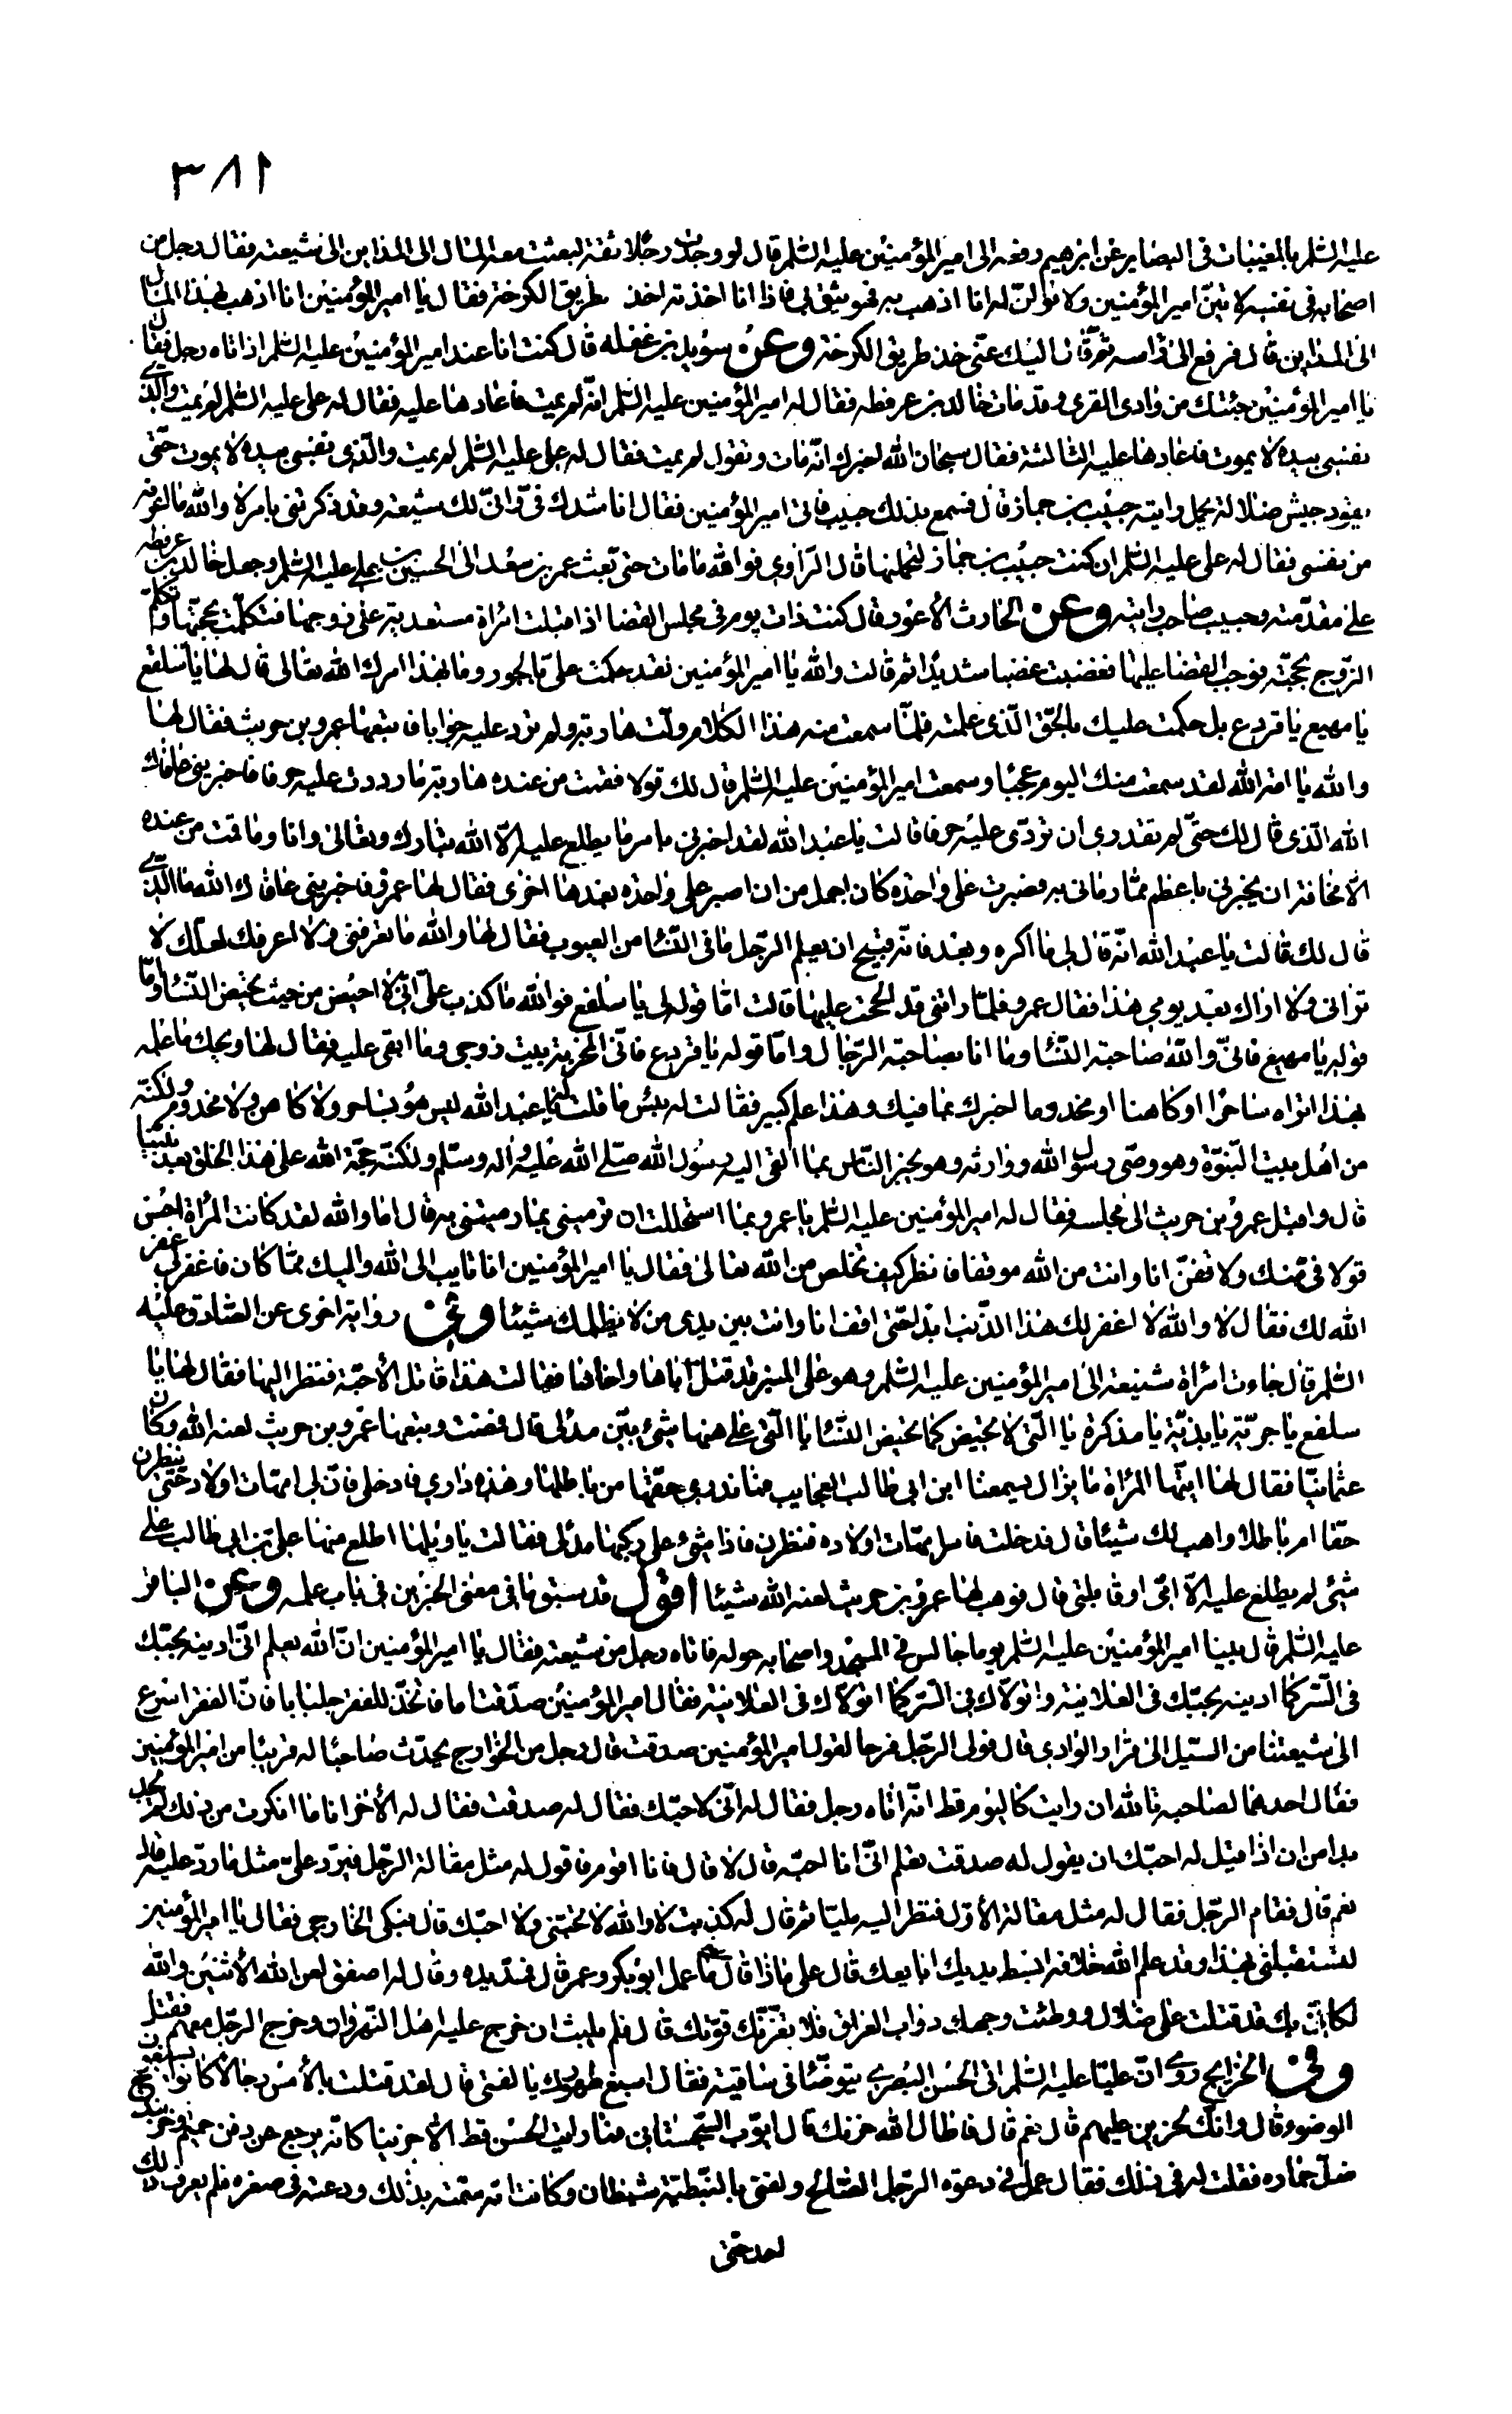 ٣٨١
عليه السلم بالمغيبات فى البصاير عن ابرهيم رفعه الى امير المؤمنين عليه السلم قال لو وجدت رجلا ثقة لبعثت معه المال الى المداين الى شيعته فقال رجل من
اصحابه فى نفسه لاتين امير المؤمنين ولاقولن له انا اذهب به فهو يثق بى فاذا انا اخذته اخذ طريق الكرخة فقال يا امير المؤمنين انا اذهب بهذا المال
الى المداين قال فرفع الى راسه ثم قال اليك عنى خذ طريق الكرخة وعن سويد بن غفله قال كنت انا عند امير المؤمنين عليه السلم اذ اتاه رجل فقال
يا امير المؤمنين جئتك من وادى القرى وقد مات خالد بن عرفطه فقال له امير المؤمنين عليه السلم انه لم يمت فاعادها عليه فقال له على عليه السلم لم يمت والذى
نفسى بيده لا يموت فاعادها عليه الثالثة فقال سبحان الله اخبرك انه مات وتقول لم يمت فقال له على عليه السلم لم يمت والذى نفسى بيده لا يموت حتى
يقود جيش ضلالة يحمل رايته حبيب بن جماز قال فسمع بذلك حبيب فاتى امير المؤمنين فقال اناشدك فى وانى لك شيعة وقد ذكرتنى بامر لا والله ما اعرفه
من نفسى فقال له على عليه السلم ان كنت حبيب بن جماز لتحملنها قال الراوى فوالله ما مات حتى بعث عمر بن سعد الى الحسين بن على عليه السلم وجعل خالد بن عرفطه
على مقدمته وحبيب صاحب رايته وعن الحارث الأعور قال كنت ذات يوم فى مجلس القضا اذا قبلت امراة مستعدية على زوجها فتكلمت بحجتها وتكلم
الزوج بحجته فوجب القضا عليها فغضبت غضبا شديدا ثم قالت والله يا امير المؤمنين لقد حكمت على بالجور وما بهذا امرك الله تعالى قال لها يا سلفع
يا مهيع يا قردع بل حكمت عليك بالحق الذى علمته فلما سمعت منه هذا الكلام ولت هاربة ولم ترد عليه جوابا فاتبعها عمرو بن حريث فقال لها
والله يا امة الله لقد سمعت منك اليوم عجبا وسمعت امير المؤمنين عليه السلم قال لك قولا فقمت من عنده هاربة ما رددت عليه حرفا فاخبرينى عافاك
الله الذى قال لك حتى لم تقدرى ان تردى عليه حرفا قالت يا عبد الله لقد اخبرنى بامر ما يطلع عليه الا الله تبارك وتعالى وانا وما قمت من عنده
الا مخافة ان يخبرنى باعظم مما رمانى به فصبرت على واحدة كان اجمل من ان اصبر على واحدة بعدها اخرى فقال لها عمرو فاخبرينى عافاك الله ما الذى
قال لك قالت يا عبد الله انه قال لى ما اكره وبعد فانه قبيح ان يعلم الرجل ما فى النسا من العيوب فقال لها والله ما تعرفنى ولا اعرفك لعلك لا
ترانى ولا اراك بعد يومى هذا فقال عمرو فلما راتنى قد الححت عليها قالت اما قوله لى يا سلفع فوالله ما كذب على انى لا احيض من حيث تحيض النسا واما
قوله يا مهيع فانى والله صاحبة النسا وما انا بصاحبة الرجال واما قوله يا قردع فانى المخربة بيت زوجى وما ابقى عليه فقال لها ويحك ما علمه
بهذا اتراه ساحرا او كاهنا او مخدوما اخبرك بما فيك وهذا علم كبير فقالت له بئس ما قلت يا عبد الله ليس هو بساحر ولا كاهن ولا مخدوم ولكنه
من اهل بيت النبوة وهو وصى رسول الله ووارثه وهو يخبر الناس بما القى اليه رسول الله صلى الله عليه واله وسلم ولكنه حجة الله على هذا الخلق بعد نبينا
قال واقبل عمرو بن حريث الى مجلسه فقال له امير المؤمنين عليه السلم يا عمرو بما استحللت ان ترمينى بما رميتنى به قال اما والله لقد كانت المراة احسن
قولا فى منك ولاقفن انا وانت من الله موقفا فانظر كيف تخلص من الله تعالى فقال يا امير المؤمنين انا تايب الى الله واليك مما كان فاغفر لى غفر
الله لك فقال لا والله لا اغفر لك هذا الذنب ابدا حتى اقف انا وانت بين يدى من لا يظلمك شيئا وفى رواية اخرى عن الصادق عليه
السلم قال جاءت امراة شنيعة الى امير المؤمنين عليه السلم وهو على المنبر قد قتل اباها واخاها فقالت هذا قاتل الأحبة فنظر اليها فقال لها يا
سلفع يا جرية يا بذية يا مذكرة يا التى لا تحيض كما تحيض النسا يا التى على هنها شئ بين مدلى قال فمضت وتبعها عمرو بن حريث لعنه الله وكان
عثمانيا فقال لها ايتها المراة ما يزال يسمعنا ابن ابى طالب العجايب فما ندرى حقها من باطلها وهذه دارى فادخلى فان لى امهات اولاد حتى ينظرن
حقا ام باطلا واهب لك شيئا قال فدخلت فامر امهات اولاده فنظرن فاذا شئ على ركبها مدلى فقالت يا ويلها اطلع منها على بن ابى طالب على
شئ لم يطلع عليه الا امى او قابلتى قال فوهب لها عمرو بن حريث لعنه الله شيئا اقول قد سبق ما فى معنى الخبرين فى باب علمه وعن الباقر
عليه السلم قال بينا امير المؤمنين عليه السلم يوما جالس فى المسجد واصحابه حوله فاتاه رجل من شيعته فقال يا امير المؤمنين ان الله يعلم انى ادينه بحبك
فى السر كما ادينه بحبك فى العلانية واتولاك فى السر كما اتولاك فى العلانية فقال امير المؤمنين صدقت اما فاتخذ للفقر جلبابا فان الفقر اسرع
الى شيعتنا من السيل الى قرار الوادى قال فولى الرجل فرحا لقول امير المؤمنين صدقت قال رجل من الخوارج يحدث صاحبا له قريبا من امير المؤمنين
فقال احدهما لصاحبه تالله ان رايت كاليوم قط انه اتاه رجل فقال له انى لاحبك فقال له صدقت فقال له الأخر انا ما انكرت من ذلك لم يجد
بدا من ان اذا قيل له احبك ان يقول له صدقت تعلم انى انا احبه قال لا قال فانا اقوم فاقول له مثل مقالة الرجل فيرد على مثل ما رد عليه قال
نعم قال فقام الرجل فقال له مثل مقالة الأول فنظر اليه مليا ثم قال له كذبت لا والله لا تحبنى ولا احبك قال فبكى الخارجى فقال يا امير المؤمنين
لتستقبلنى بهذا وقد علم الله خلافه ابسط يديك ابايعك قال على ماذا قال على ما عمل ابو بكر وعمر قال فمد يده وقال له اصفق لعن الله الأثنين والله
لكانى بك قد قتلت على ضلال ووطئت وجهك دواب العراق فلا تغرنك قوتك قال فلم يلبث ان خرج عليه اهل النهروان وخرج الرجل معهم فقتل
وفى الخرايج روى ان عليا عليه السلم اتى الحسن البصرى يتوضا فى ساقية فقال اسبغ طهورك يا لفتى قال لقد قتلت بالأمس رجالا كانوا يسبغون
الوضوء قال وانك لحزين عليهم قال نعم قال فاطال الله حزنك قال ايوب السجستانى فما رايت الحسن قط الا حزينا كانه يرجع عن دفن حميم او خربندج
ضل حماره فقلت له فى ذلك فقال عمل فى دعوة الرجل الصالح ولفتى بالنبطية شيطان وكانت امه سمته بذلك ودعته فى صغره فلم يعرف ذلك
احد حتى